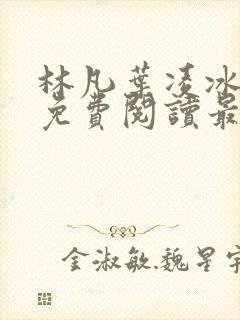 林凡葉凌冰
免費閱讀最
金淑敏.魏星宇